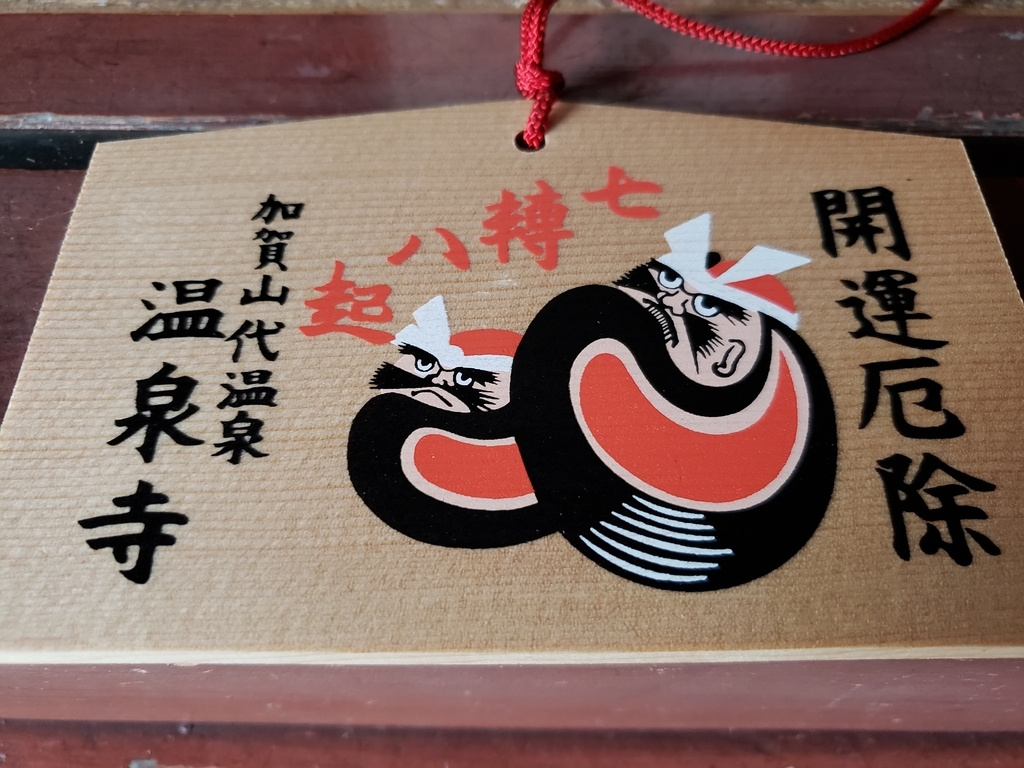 開運厄除
七轉八起
加賀山代温泉
温泉寺